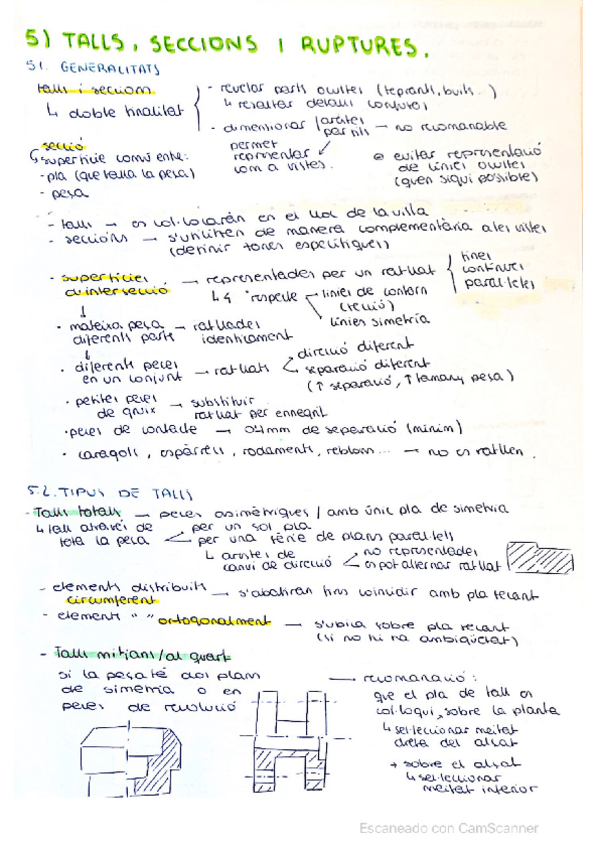 5) TALLS, SECCIONS I RUPTURES.
5.1. GENERALITATS
talls i seccions
↳ doble finalitat
- revelar parts ocultes (forats, buits...)
↳ resaltar detalls
- dimensionar
permet
representar
com a vistes.
→ no recomanable
evitar representació
de línies ocultes
(quan sigui possible)
secció
↳ superfície comú entre:
- pla (que talla la peça)
- peça
- talls → es col·locaràn en el lloc de la vista
- seccions → s'utilitzen de manera complementària a les vistes
(definir zones específiques)
- superfícies
d'intersecció → representades per un ratllat
fines
contínues
paral·leles
↳ respecte
línies de contorn
(secció)
línies simetria
· mateixa peça
diferents parts → ratllades
idènticament
· diferents peces
en un conjunt → ratllats
direcció diferent
separació diferent
(↑ separació, ↑ tamany peça)
· petites peces
de gruix → substituir
ratllat per ennegrit
· peces de contacte → 0,4mm de separació (mínim)
· caragols, espàrrecs, rodaments, reblons... → no es ratllen.
5.2. TIPUS DE TALLS
- Talls totals → peces asimètriques / amb únic pla de simetria
↳ tall através de
tota la peça
per un sol pla
per una sèrie de plans paral·lels
↳ arestes de
canvi de direcció
no representades
es pot alternar ratllat
- elements distribuïts
circumferent → s'abatiran fins coincidir amb pla tecant
- elements " " ortogonalment → s'ubica sobre pla tecant
(si no hi ha ambigüetat)
- Talls mitjans/al quart
si la peça té dos plans
de simetria o en
peces de revolució
→ recomanació:
que el pla de tall es
col·loqui, sobre la planta
↳ sel·leccionar meitat
dreta del alçat
→ sobre el alçat
↳ sel·leccionar
meitat inferior
Escaneado con CamScanner